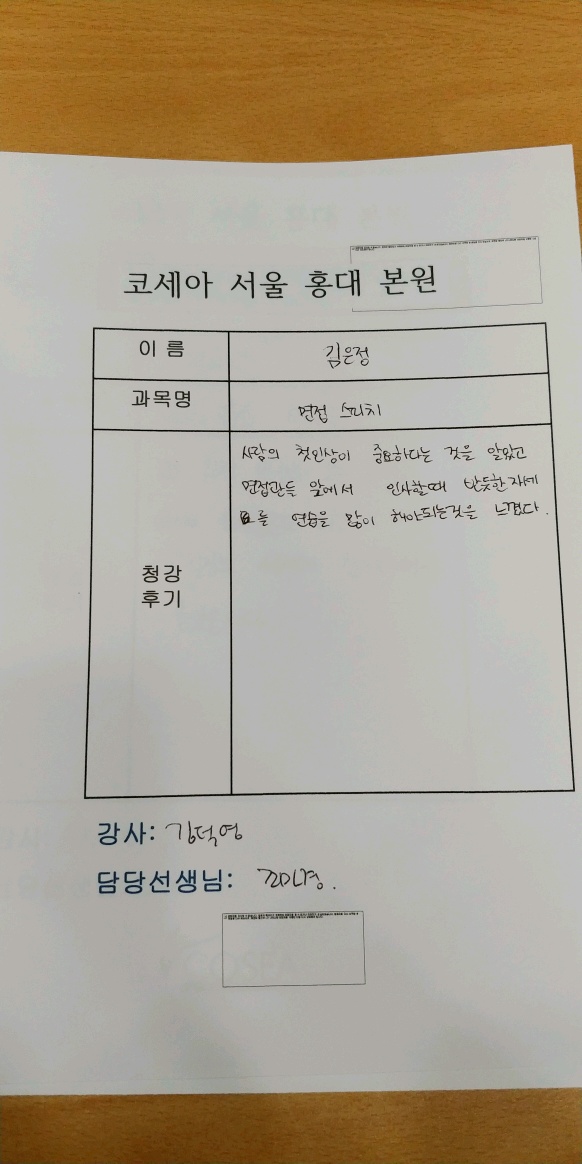 코세아 서울 홍대 본원
이 름
김은정
과목명
면접 스피치
청강
후기
사람의 첫인상이 중요하다는 것을 알았고
면접관등 앞에서 인사할때 반듯한자세
를 연습을 많이 해야되는것을 느꼈다.
강사: 김덕영
담당선생님: